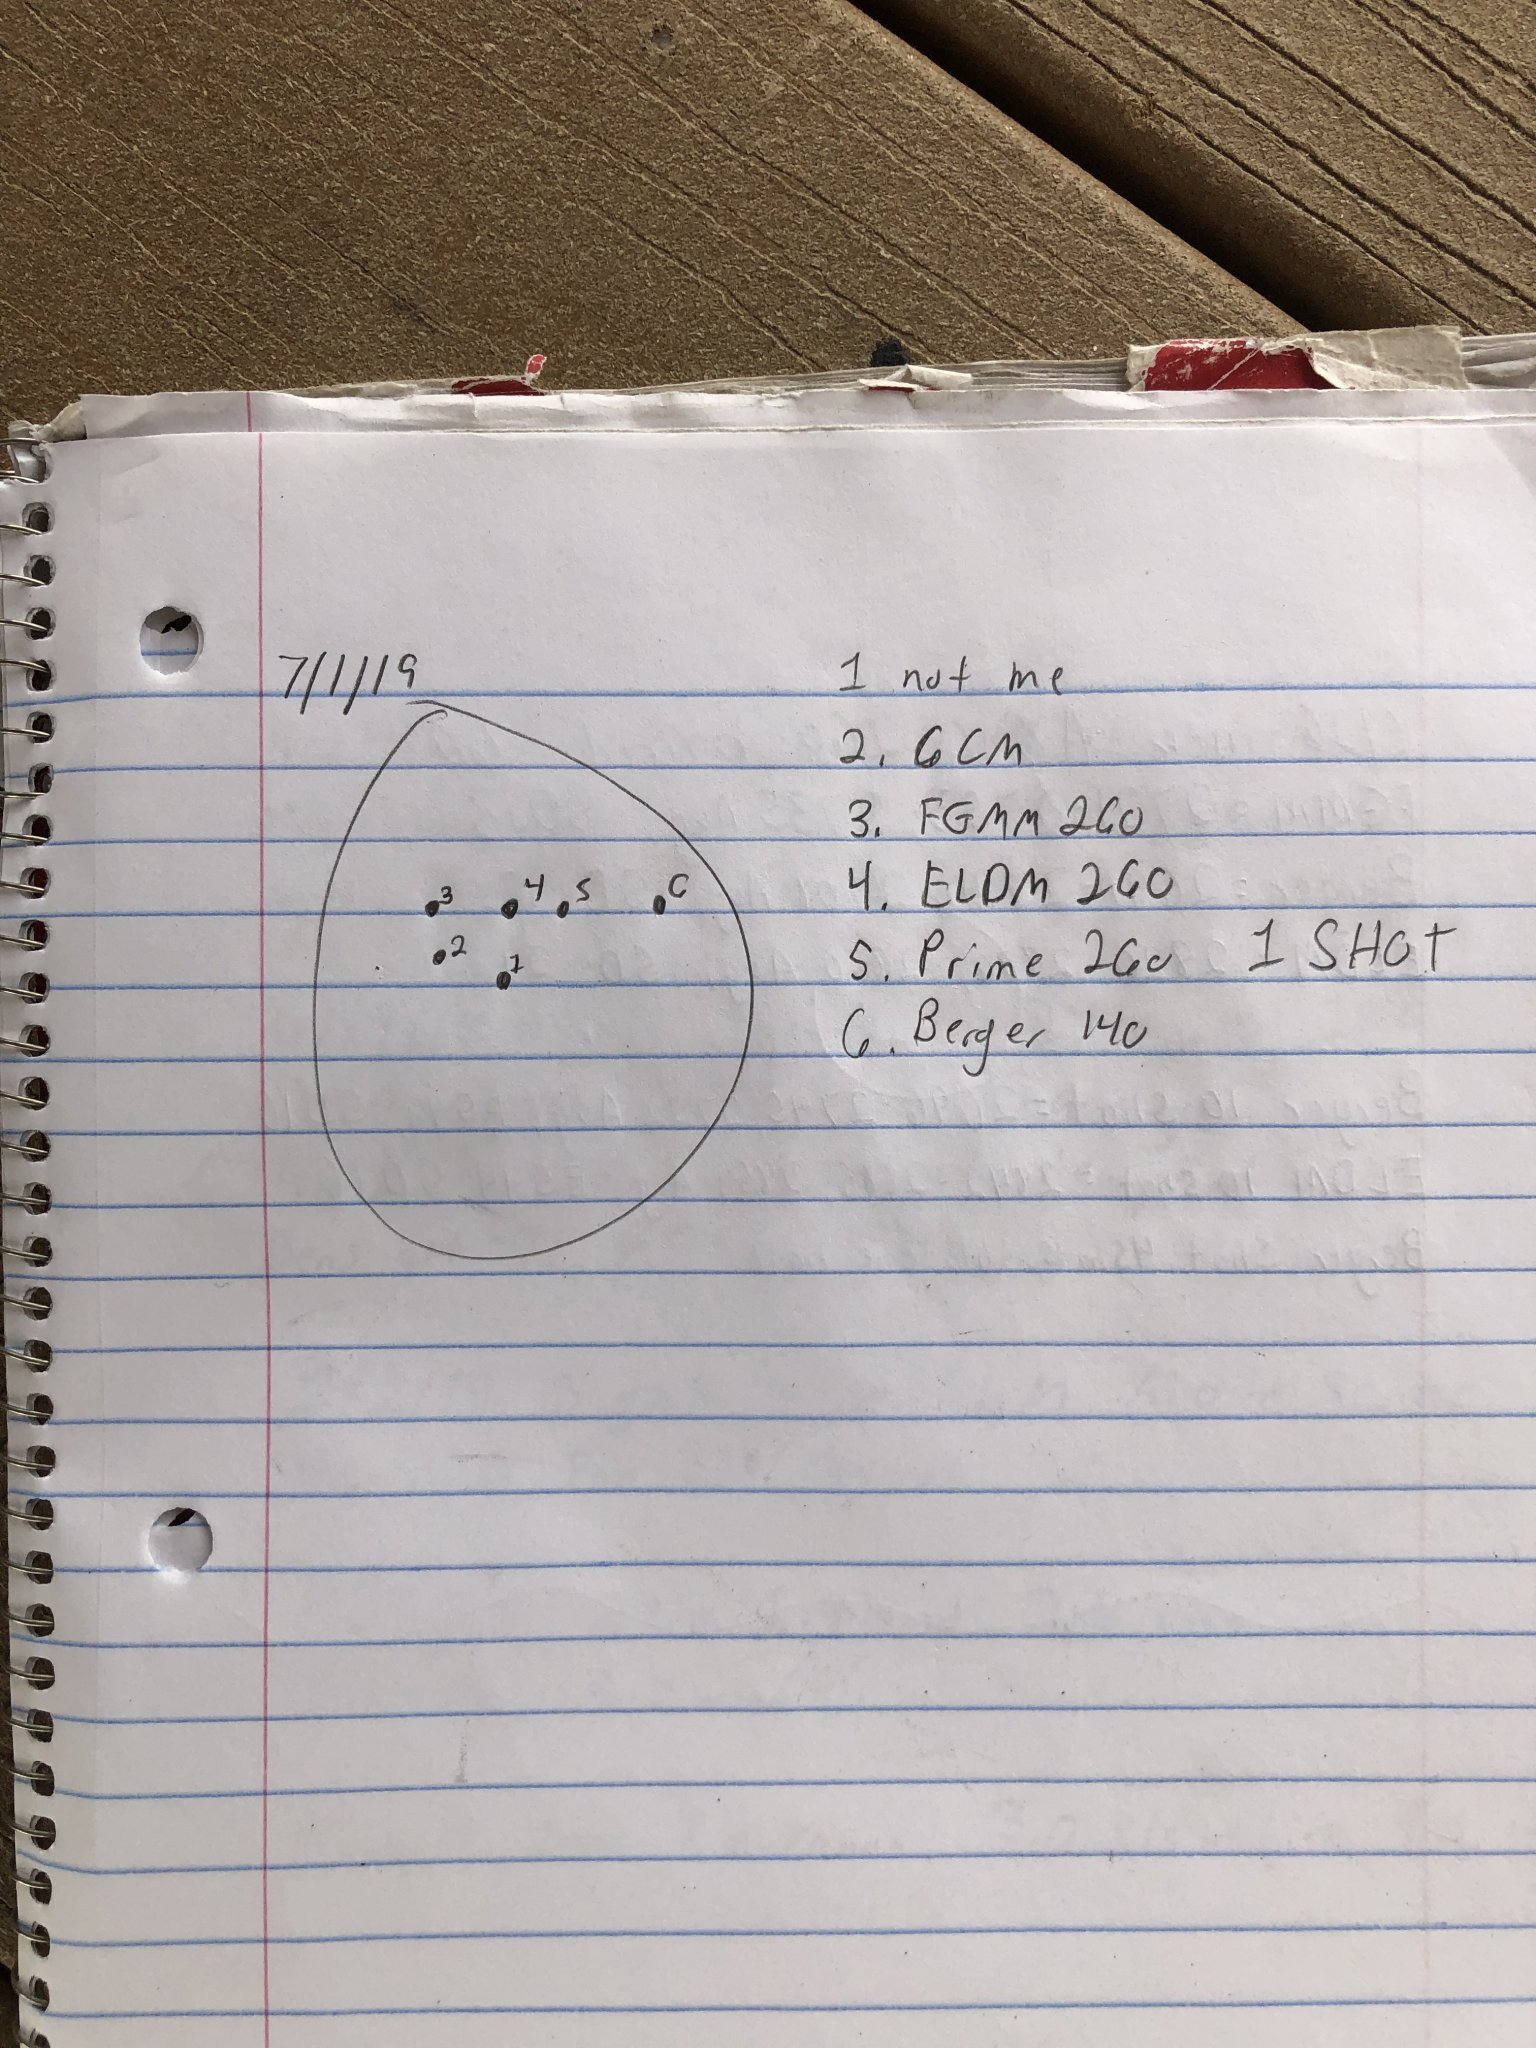 7/1/19
3 4 5 6
2
1
1 not me
2. 6CM
3. FGMM 260
4. ELDM 260
5. Prime 260 1 SHOT
6. Berger 140